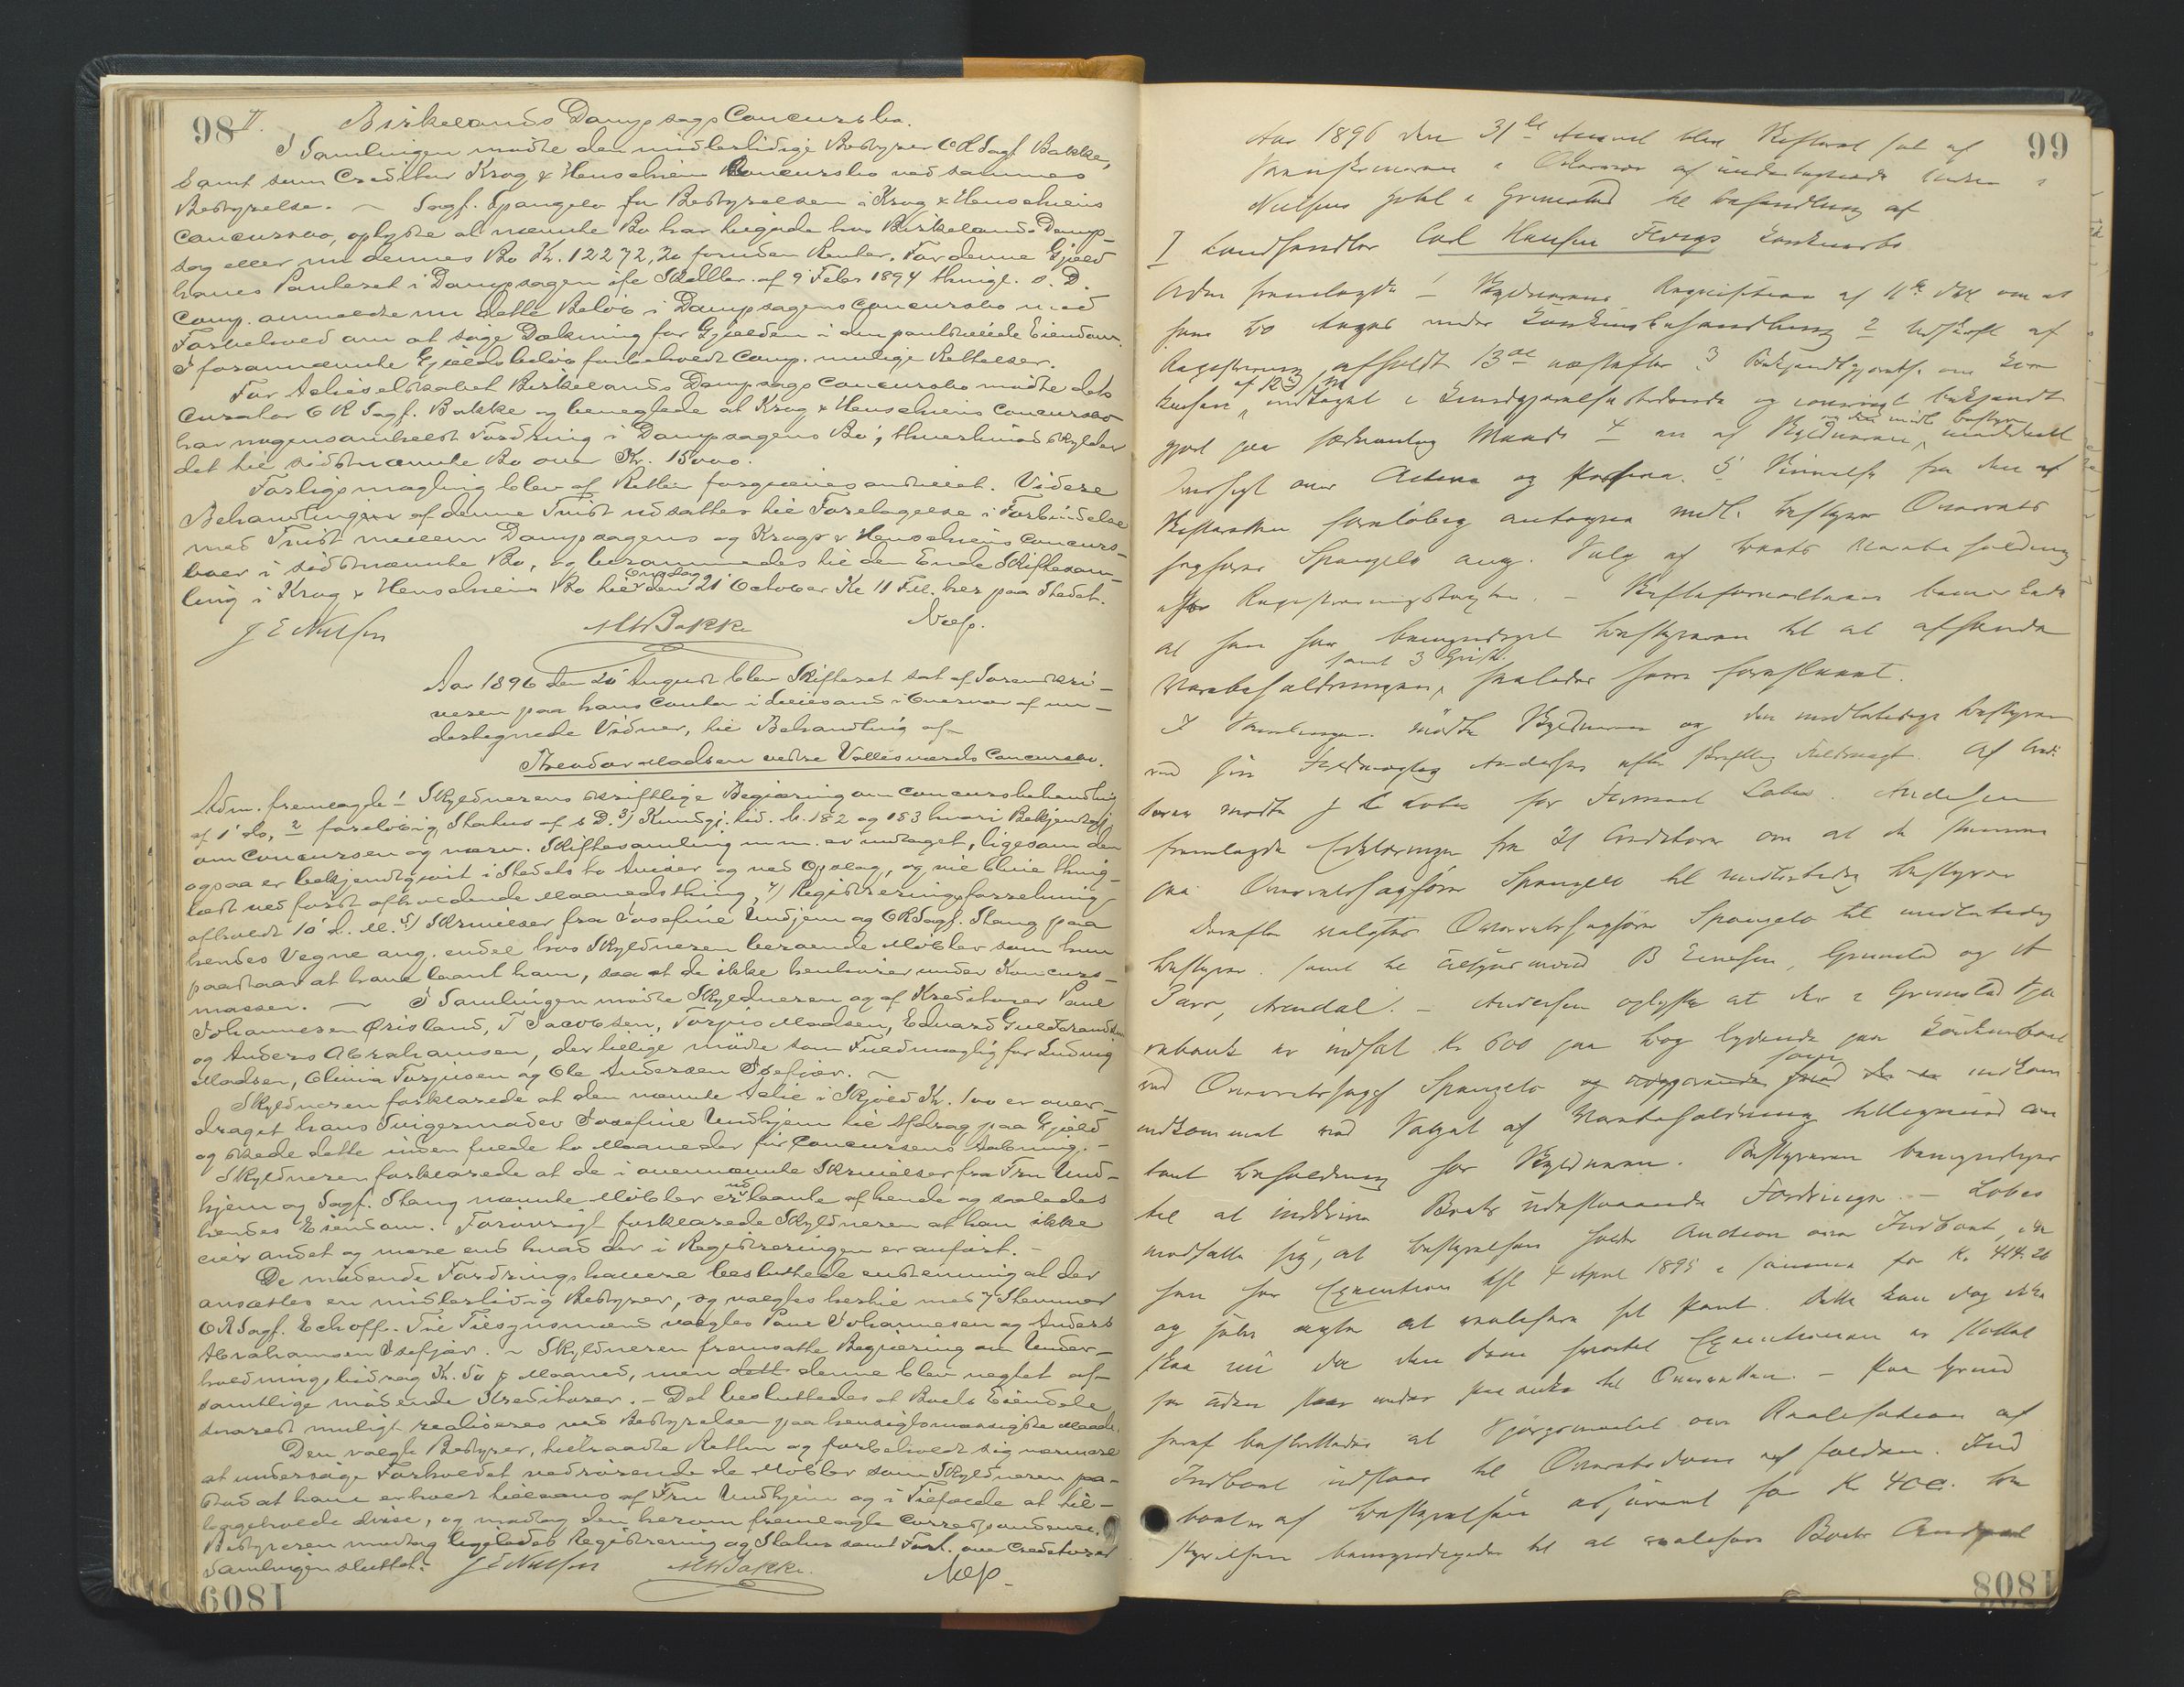 98 II. Birkelands Dampsags Concursbo.
I Samlingen mødte den midlertidige Bestyrer ORSagf. Bakke,
samt som Creditor Krog & Henschiens Concursbo ved sammes
Bestyrelse. – Sagf. Spangelo for Bestyrelsen i Krog & Henschiens
Concursbo, oplyste at nævnte Bo har tilgode hos Birkelands Damp-
sag eller nu dennes Bo Kr. 12272,20 foruden Renter. For denne Gjæld
haves Panteret i Dampsagen ifø Skadbr. af 9 Febr 1894 thingl. s. D.
Comp. anmeldte nu dette Beløb i Dampsagens Concursbo med
Forbehold om at søge Dækning for Gjælden i den pantsatte Eiendom.
I forannævnte Gjældsbeløb forbeholdt Comp. mulige Rettelser.
For Actieselskabet Birkelands Dampsags Concursbo mødte dets
Curator ORSagf. Bakke og benegtede at Krog & Henschiens Concursbo
har nogensomhelst Fordring i Dampsagens Bo, thvertimod skylder
det til sidstnævnte Bo over Kr. 15000.
Forligsmægling blev af Retten forgjæves anstillet. Videre
Behandlingen af denne Tvist udsattes til Foretagelse i Forbindelse
med Tvist mellem Dampsagens og Krogs & Henschiens Concurs-
boer i sidstnævnte Bo, og berammedes til den Ende Skiftesam-
ling i Krog & Henschiens Bo til Onsdag den 21 October Kl 11 Fm. her paa Stedet.
J E Nielsen MWBakke
Aar 1896 den 20 August blev Skifteret sat af Sorenskri-
veren paa hans Contor i Lillesand i Overvær af un-
dertegnede Vidner, til Behandling af
Theodor Madsen vestre Vallesværds Concursbo.
Adm. fremlagde 1 Skyldnerens skriftlige Begjæring om Concursbehandling
af 1 ds, 2 foreløbig Status af s D. 3) Kundgj. tid. No. 182 og 183 hvori Bekjendtgj.
om Concursen og nærv. Skiftesamling m.m. er indtaget, ligesom den
ogsaa er bekjendtgjort i Stedets to Aviser og ved Opslag, og vil blive thing-
læst ved først afholdende Maanedsthing, 4) Registreringsforretning
afholdt 10 d. M. 5) Skrivelser fra Josefine Undhjem og ORSagf. Stang paa
hendes Vegne ang. endel hos Skyldneren beroende Møbler som hun
paastaar at have laant ham, saa at de ikke henhører under Koncurs-
massen. – I Samlingen mødte Skyldneren og af Kreditorer Paul
Johannesen Ørisland, T Jacobsen, Torjus Madsen, Edvard Guldbrandsen
og Anders Abrahamsen, der tillige mødte som Fuldmægtig for Ludvig
Madsen, Olivia Torjusen og Ole Andersen Isefjær. –
Skyldneren forklarede at den nævnte Actie i Skjold Kr. 100 er over-
draget hans Svigermoder Josefine Undhjem til Afdrag paa Gjæld
og skede dette inden fulde to Maaneder før Concursens Aabning. –
Skyldneren forklarede at de i ovennævnte Skrivelser fra Fru Und-
hjem og Sagf. Stang nævnte Møbler er ud laante af hende og saaledes
hendes Eiendom. Forøvrigt forklarede Skyldneren at han ikke
eier andet og mere end hvad der i Registreringen er anført. –
De mødende Fordringshavere besluttede enstemmig at der
ansættes en midlertidig Bestyrer, og valgtes hertil med 7 Stemmer
ORSagf. Eckhoff. Til Tilsynsmænd valgtes Paul Johannesen og Anders
Abrahamsen Isefjær. – Skyldneren fremsatte Begjæring om Under-
holdningsbidrag Kr. 50 pr Maaned, men dett denne blev negtet af
samtlige mødende Kreditorer. – Det besluttedes at Boets Eiendele
snarest muligt realiseres ved Bestyrelsen paa hensigtsmæssigste Maade.
Den valgte Bestyrer, tiltraadte Retten og forbeholdt sig nærmere
at undersøge Forholdet vedrørende de Møbler som Skyldneren paa-
stod at have erholdt tillaans af Fru Undhjem og i Tilfælde at til-
bageholde disse, og modtog den herom fremlagte Correspondance.
Bestyreren modtog ligeledes Registrering og Status samt Fort. over Creditorer
Samlingen sluttet. J E Nielsen MWBakke.
18091
99
Aar 1896 den 31te August blev Skifteret sat af
Sorenskriveren i Overvær af undertegnede Vidner i
Nielsens Hotel i Grimstad til Behandling af
I Landhandler Carl Hansen Konkursbo
Adm fremlagde 1 Skyldnerens Requisition af 11te ds om at
hans Bo tages under Konkursbehandling 2 Udskrift af
Registrering afholdt 13de næstefter 3 Bekjendtgjørelse om Kon
kursen indtaget i Kundgjørelsestidende og iøvrigt bekjendt
gjort paa sedvanlig Maade 4 en af Skyldneren og den midl bestyrer meddelt
Oversigt over Activa og Passiva. 5 Skrivelse fra den af
Skifteretten foreløbig antagne midl. Bestyrer Overrets
sagfører Spangelo ang. Salg af Boets Varebeholdning
efter Registreringstaxten. – Skifteforvalteren bemærkede
at han har bemyndiget Bestyreren til at afhænde
Varebeholdningen, samt 3 Grise. saaledes som foreslaaet.
I Samlingen mødte Skyldneren og den midlertidige Bestyrer
ved sin Fuldmægtig Andersen efter skriftlig Fuldmagt. Af Kredi
torer mødte J L Lobes for Herman Lobes. Andersen
fremlagde Erklæringer fra 21 Creditorer om at de stemme
paa Overretssagfører Spangelo til midlertidig Bestyrer
Derefter valgtes Overretssagfører Spangelo til midlertidig
Bestyrer. samt til Tilsynsmænd B Evensen, Grimstad og A
Parr, Arendal. – Andersen oplyste at der i Grimstad Spa
rebank er indsat Kr 600 paa Bog lydende paa Konkursboet
ved Overretssagf Spangelo som indkom
indkommet ved Salget af Varebeholdning
Beholdning hos Skyldneren. Bestyreren bemyndiges
til at inddrive Boets udestaaende Fordringer. – Lobes
modsatte sig, at Bestyrelsen holdt Auction over Indboet, da
han har Execution afh 4 April 1895 i samme for Kr. 414.26
og selv agter at realisere sit Pant. Dette kan dog ikke
ske nu da den Dom hvorved Executionen er stottet
for tiden staar under paaanke til Overretten. – Paa Grund
heraf besluttedes at Spørgsmaalet om Realisation af
Indboet udstaar til Overretsdom er falden. Ind
boet er af Bestyrelsen assureret for Kr 400. Be
styrelsen bemyndigedes til at realisere Boets
18081